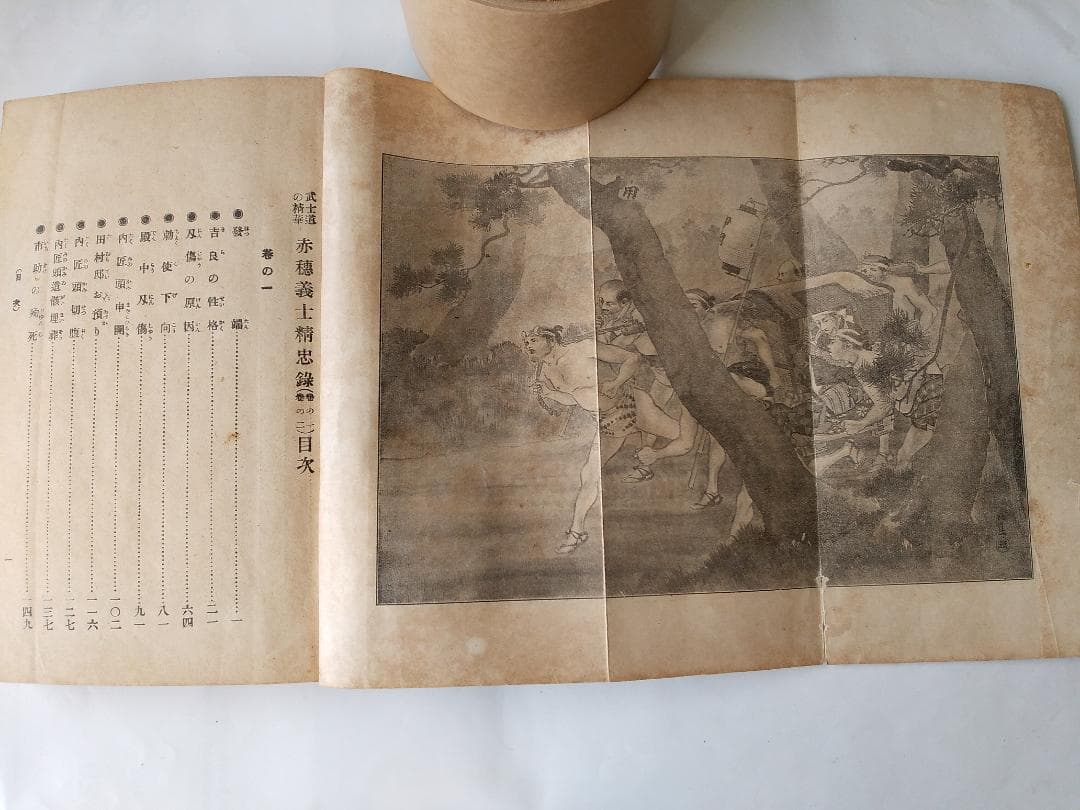 用
武士道の精華 赤穗義士精忠錄(卷の一 卷の二)目次
卷の一
◉發端……一
◉吉良の性格……二一
◉刄傷の原因……六四
◉勅使下向……八一
◉殿中刄傷……九一
◉內匠頭申開……一〇二
◉田村邸お預り……一一六
◉內匠頭切腹……一二七
◉內匠頭遺骸埋葬……一三七
◉市助の殉死……一四九
(目次)
一